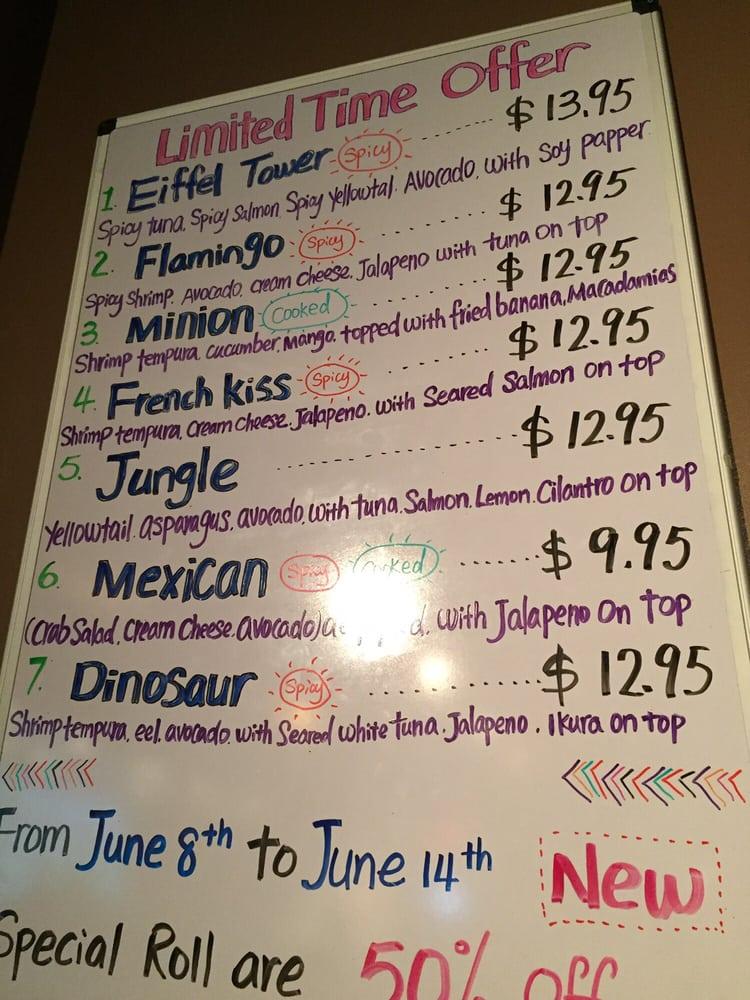 Limited Time Offer
1. Eiffel Tower Spicy ........ $ 13.95
Spicy tuna. Spicy Salmon. Spicy Yellowtail. Avocado. with Soy papper
2. Flamingo Spicy ........ $ 12.95
Spicy Shrimp. Avocado. cream cheese. Jalapeno with tuna on top
3. Minion Cooked ........ $ 12.95
Shrimp tempura. cucumber. Mango. topped with fried banana, Macadamias
4. French kiss Spicy ........ $ 12.95
Shrimp tempura. cream cheese. Jalapeno. with Seared Salmon on top
5. Jungle ........ $ 12.95
Yellowtail. asparagus. avocado. with tuna. Salmon. Lemon. Cilantro on top
6. Mexican Spicy Cooked ...... $ 9.95
(Crab Salad. Cream Cheese. avocado) with Jalapeno on Top
7. Dinosaur Spicy ........ $ 12.95
Shrimp tempura. eel. avocado. with Seared white tuna. Jalapeno. Ikura on top
From June 8th to June 14th New
Special Roll are 50% off